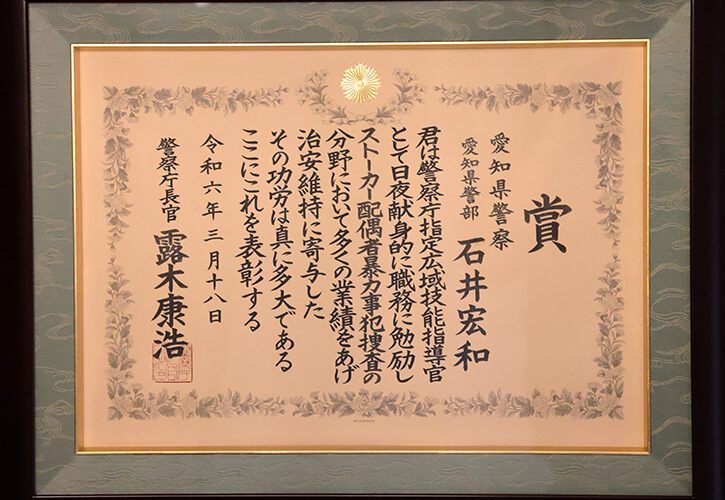 賞
愛知県警察
愛知県警部 石井宏和
君は警察庁指定広域技能指導官
として日夜献身的に職務に勉励し
ストーカー配偶者暴力事犯捜査の
分野において多くの業績をあげ
治安維持に寄与した
その功労は真に多大である
ここにこれを表彰する
令和六年三月十八日
警察庁長官 露木康浩